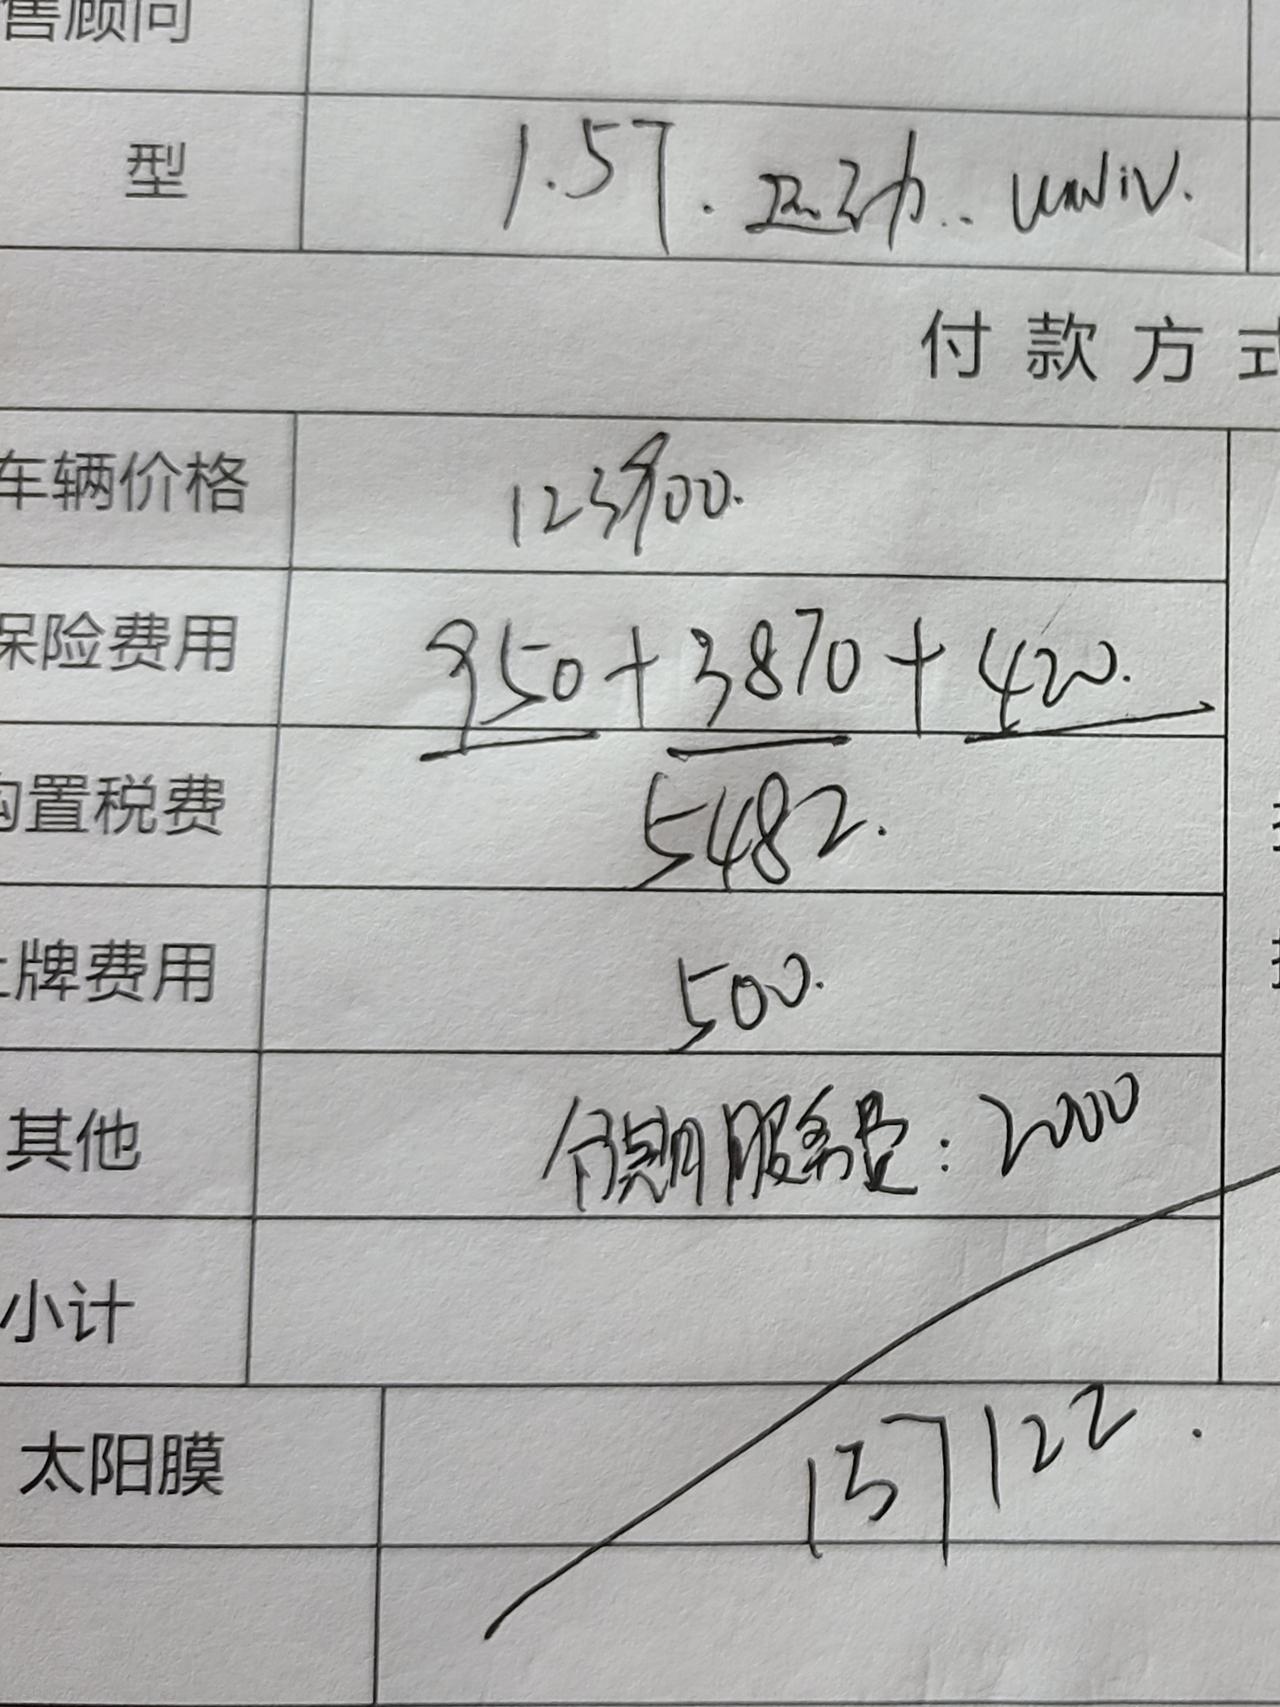 售顾问
型 1.5T. 运动.. univ.
付款方式
车辆价格 123900.
保险费用 950+3870+420.
购置税费 5482.
上牌费用 500.
其他 分期服务费:2000
小计
太阳膜 137122.